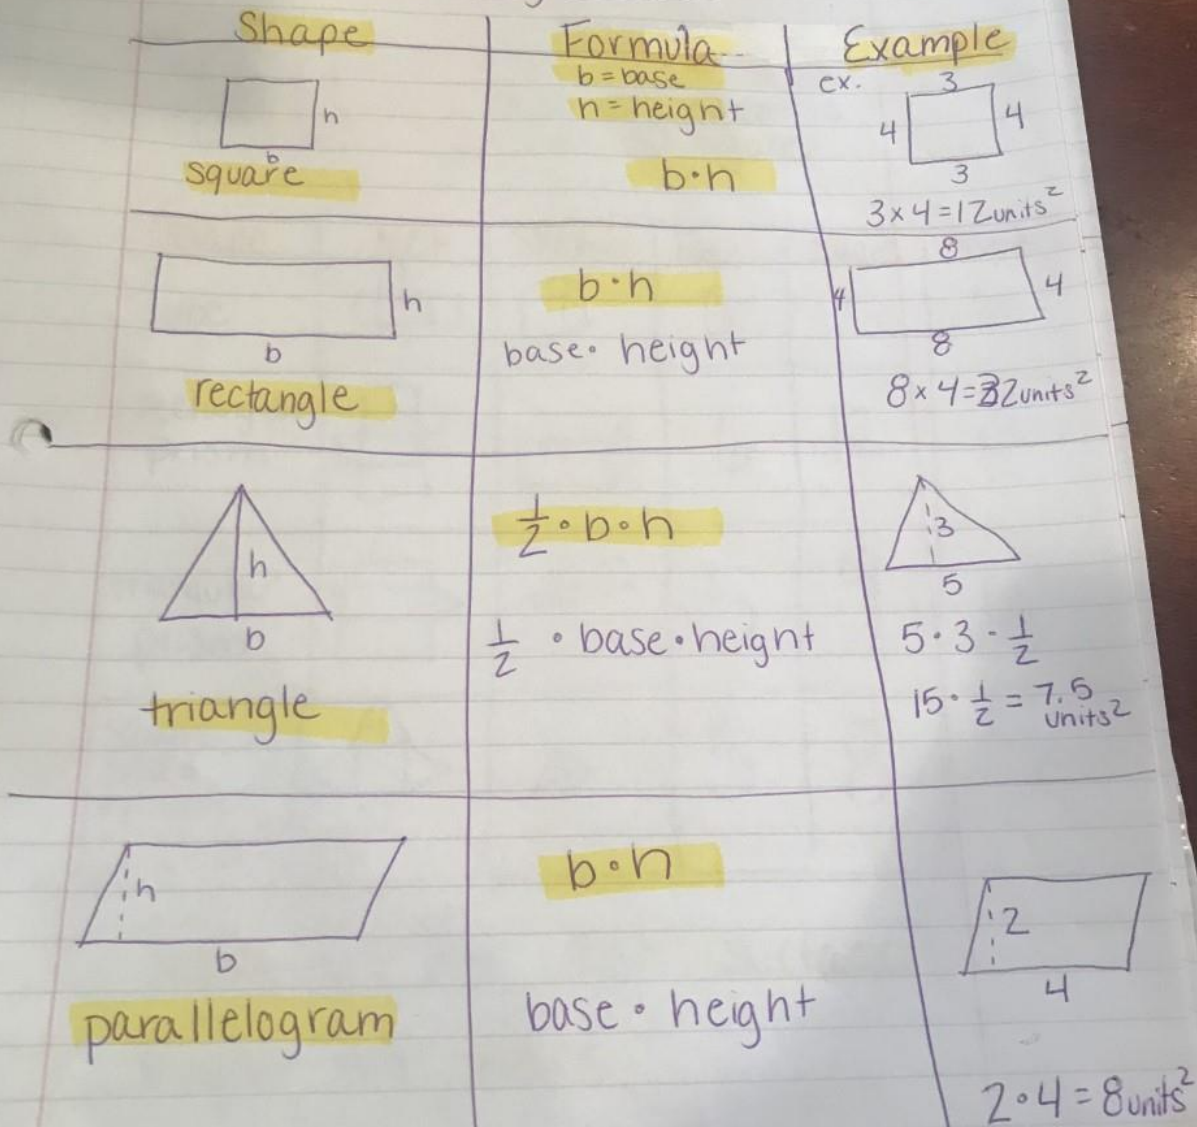 Shape
Formula
Example
h
b
square
b = base
h = height
b·h
ex.
3
4
4
3
3 × 4 = 12 units²
h
b
rectangle
b·h
base· height
8
4
4
8
8 × 4 = 32 units²
h
b
triangle
1/2 · b · h
1/2 · base · height
3
5
5 · 3 · 1/2
15 · 1/2 = 7.5
units²
h
b
parallelogram
b · h
base · height
2
4
2 · 4 = 8 units²